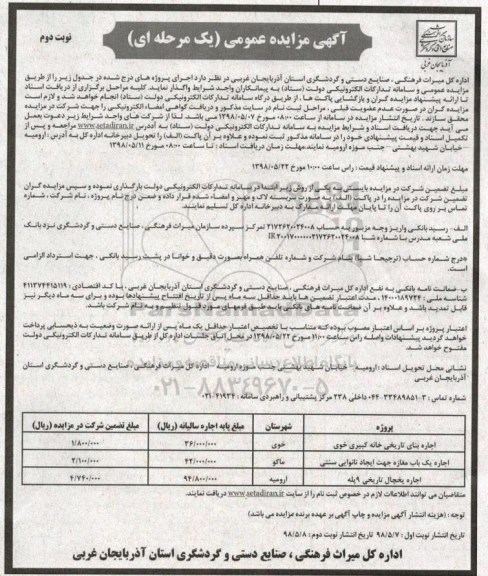 نوبت دوم
آگهی مزایده عمومی (یک مرحله ای)
آذربایجان غربی
اداره کل میراث فرهنگی ، صنایع دستی و گردشگری استان آذربایجان غربی در نظر دارد اجرای پروژه های درج شده در جدول زیر را از طریق
مزایده عمومی و سامانه تدارکات الکترونیکی دولت (ستاد) به پیمانکاران واجد شرایط واگذار نماید. کلیه مراحل برگزاری از دریافت اسناد
تا ارائه پیشنهاد مزایده گران و بازگشایی پاکت ها ، از طریق درگاه سامانه تدارکات الکترونیکی دولت (ستاد) انجام خواهد شد و لازم است
مزایده گران در صورت عدم عضویت قبلی ، مراحل ثبت نام در سایت مذکور و دریافت گواهی امضاء الکترونیکی را جهت شرکت در مزایده
محقق سازند . تاریخ انتشار مزایده در سامانه از ساعت ۰۸:۰۰ مورخ ۱۳۹۸/۰۵/۰۷ می باشد. لذا از شرکت های واجد شرایط زیر دعوت بعمل
می آید جهت دریافت اسناد و شرایط مزایده به سامانه تدارکات الکترونیکی دولت (ستاد) به آدرس www.setadiran.ir مراجعه و پس از
تکمیل اسناد و قیمت پیشنهادی خود را در سامانه مذکور ثبت نموده و علاوه بر آن پاکت (الف) را تحویل دبیرخانه اداره کل به آدرس : ارومیه
– خیابان شهید بهشتی – جنب موزه ارومیه نمایند.مهلت زمان دریافت اسناد : تا ساعت ۰۸:۰۰ مورخ ۱۳۹۸/۰۵/۱۱
مهلت زمان ارائه اسناد و پیشنهاد قیمت: راس ساعت ۱۰:۰۰ مورخ ۱۳۹۸/۰۵/۲۲
مبلغ تضمین شرکت در مزایده بایستی به یکی از روش زیر ابتدا در سامانه تدارکات الکترونیکی دولت بارگذاری نموده و سپس مزایده گران
تضمین شرکت در مزایده را در پاکت (الف) به صورت سربسته لاک و مهر و امضاء شده قرار داده و ضمن درج نام پروژه ، نام شرکت ، شماره
تماس بر روی پاکت آن را تا پایان مهلت ارائه مدارک به دبیرخانه اداره کل تسلیم نمایند.
الف- رسید بانکی واریز وجه مزبور به حساب ۲۱۷۲۶۲۰۰۲۴۰۰۸ تمرکز سپرده سازمان میراث فرهنگی، صنایع دستی و گردشگری نزد بانک
ملی شعبه مدرس با شماره شبا
*درج شماره حساب (ترجیحا شبا) بنام شرکت و شماره تلفن همراه بصورت دقیق و خوانا در پشت رسید بانکی ، جهت استرداد الزامی
است.
ب- ضمانت نامه بانکی به نفع اداره کل میراث فرهنگی، صنایع دستی و گردشگری استان آذربایجان غربی ، با کد اقتصادی : ۴۱۱۳۷۴۴۱۵۱۱۹
شناسه ملی : ۱۴۰۰۰۱۸۹۷۳۴ ، مدت اعتبار تضمین ها باید حداقل سه ماه پس از تاریخ افتتاح پیشنهادها بوده و برای سه ماه دیگر نیز
قابل تمدید باشد و علاوه بر آن ضمانت نامه های بانکی باید طبق فرمهای مورد قبول تنظیم به نام شرکت باشد.
اعتبار پروژه بر اساس اعتبار مصوب بوده که متناسب با تخصیص اعتبار حداقل یک ماه پس از ارائه صورت وضعیت به ذیحسابی پرداخت
خواهد گردید پیشنهادات واصله راس ساعت ۱۱:۰۰ صبح مورخ ۱۳۹۸/۰۵/۲۲ در محل اتاق جلسات اداره کل از طریق سامانه تدارکات الکترونیکی دولت
مفتوح خواهد شد.
نشانی محل تحویل اسناد : ارومیه – خیابان شهید بهشتی جنب موزه ارومیه – اداره کل میراث فرهنگی، صنایع دستی و گردشگری استان
آذربایجان غربی
شماره تماس : ۳-۰۴۴-۳۳۴۸۹۸۵۱ داخلی ۲۳۸ مرکز پشتیبانی و راهبردی سامانه : ۰۲۱-۴۱۹۳۴
پروژه شهرستان مبلغ پایه اجاره سالیانه (ریال) مبلغ تضمین شرکت در مزایده (ریال)
اجاره بنای تاریخی خانه کبیری خوی خوی ۳۶/۰۰۰/۰۰۰ ۱/۸۰۰/۰۰۰
اجاره یک باب مغازه جهت ایجاد نانوایی سنتی ماکو ۴۲/۰۰۰/۰۰۰ ۲/۱۰۰/۰۰۰
اجاره یخچال تاریخی ۹پله ارومیه ۹۴/۸۰۰/۰۰۰ ۴/۷۴۰/۰۰۰
متقاضیان می توانند اطلاعات لازم در خصوص ثبت نام را از سایت www.setadiran.ir دریافت نمایند.
توجه: (هزینه انتشار آگهی مزایده و چاپ آگهی بر عهده برنده مزایده می باشد)
تاریخ انتشار نوبت اول: ۹۸/۵/۷ تاریخ انتشار نوبت دوم: ۹۸/۵/۸
اداره کل میراث فرهنگی ، صنایع دستی و گردشگری استان آذربایجان غربی
۰۲۱-۸۸۳۴۹۶۷۰-۵